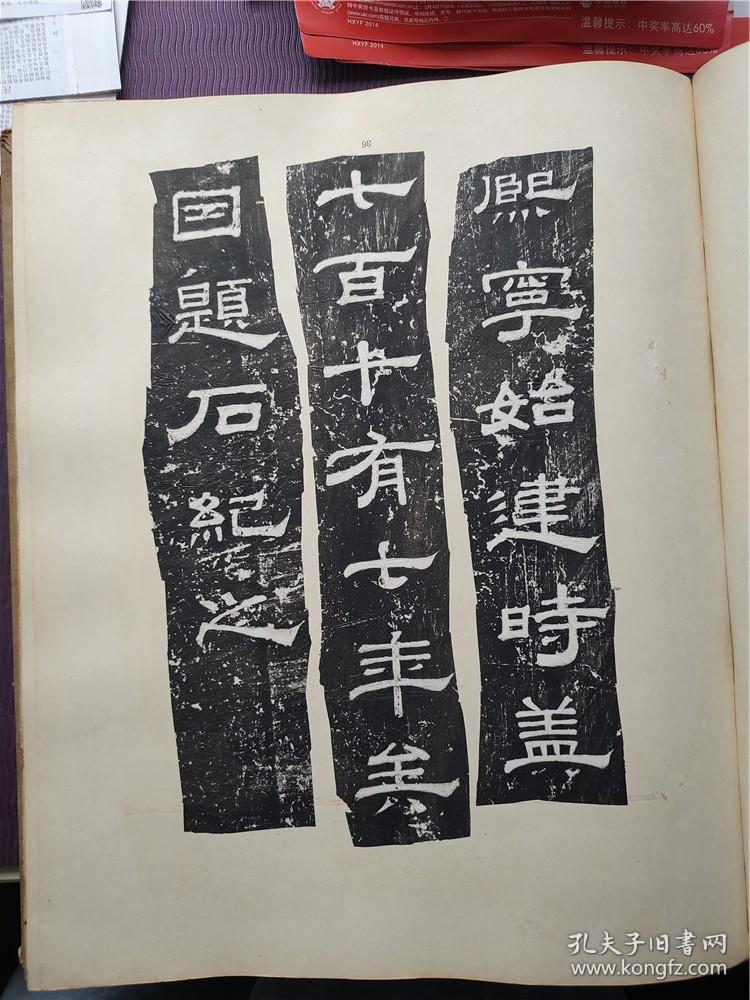 HXYF 2014
温馨提示：中奖率高达60%
HXYF 2014
温馨提示：中奖率高达60%
熙寧始建時盖
七百十有七年矣
因題石紀之
孔夫子旧书网
www.kongfz.com